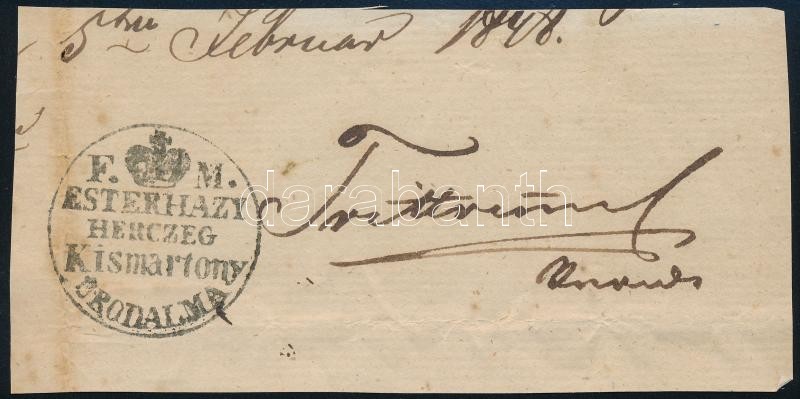 5ten Februar 1848.
F. M.
ESTERHAZY
HERCZEG
Kismartony
URODALMA
darabanth